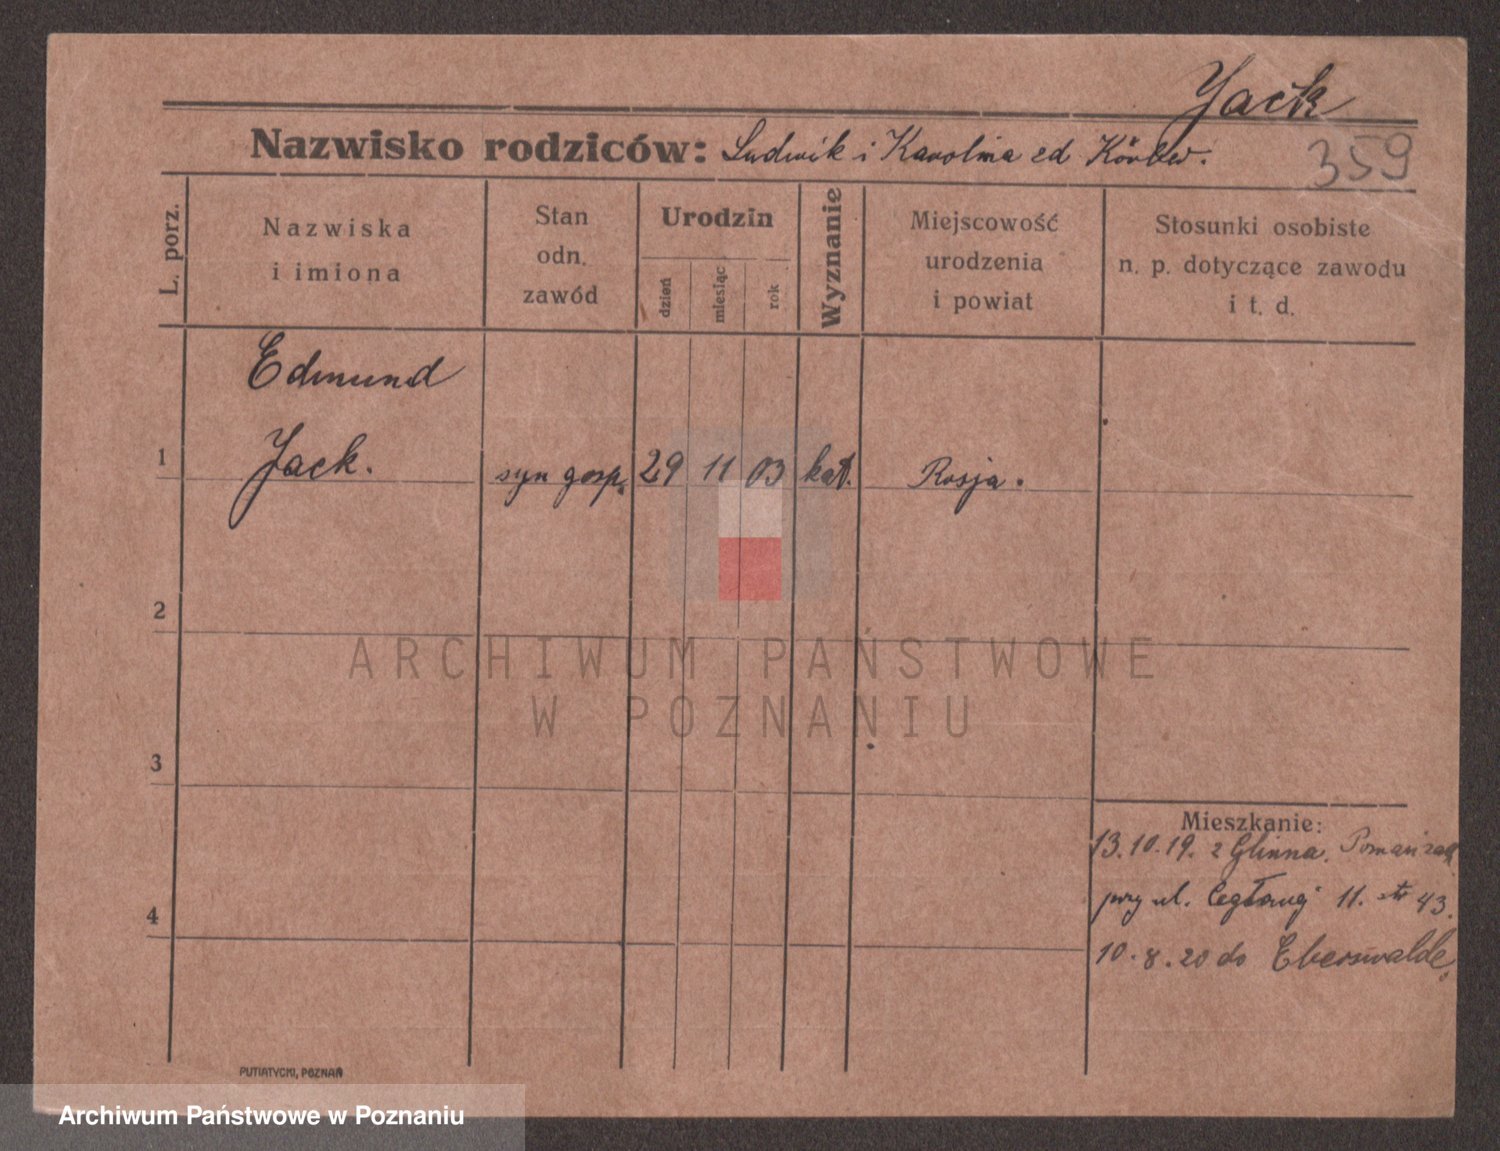 Jack
Nazwisko rodziców: Ludwik i Karolina
359
L. porz.
Nazwiska
i imiona
Stan
odn.
zawód
Urodzin
dzień
miesiąc
rok
Wyznanie
Miejscowość
urodzenia
i powiat
Stosunki osobiste
n. p. dotyczące zawodu
i t. d.
Edmund
1 Jack. syn gosp. 29 11 03 kat. Rosja.
2
ARCHIWUM PAŃSTWOWE
W POZNANIU
3
Mieszkanie:
13.10.19. z Glinna.
przy ul. 11. 43.
4
10.8.20 do Eberswalde
PUTIATYCKI, POZNAŃ
Archiwum Państwowe w Poznaniu